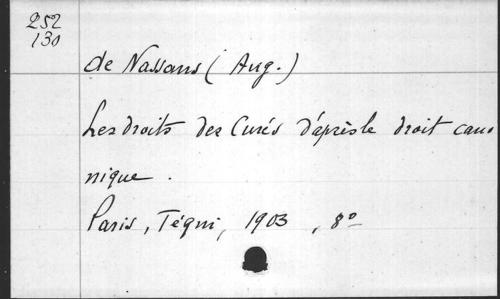 252
130
de Nassans (Aug.)
Les droits des Curés d'après le droit cano
nique.
Paris, Téqui, 1903, 8°